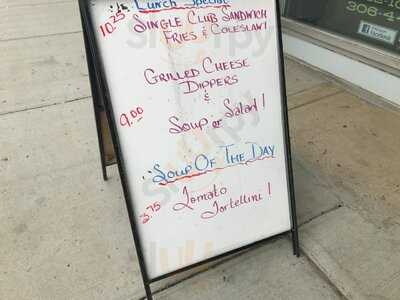 Lunch Special
10.25 Single Club Sandwich
Fries & Coleslaw!
Grilled Cheese
Dippers
&
9.00
Soup or Salad!
Soup Of The Day
3.75 Tomato
Tortellini!